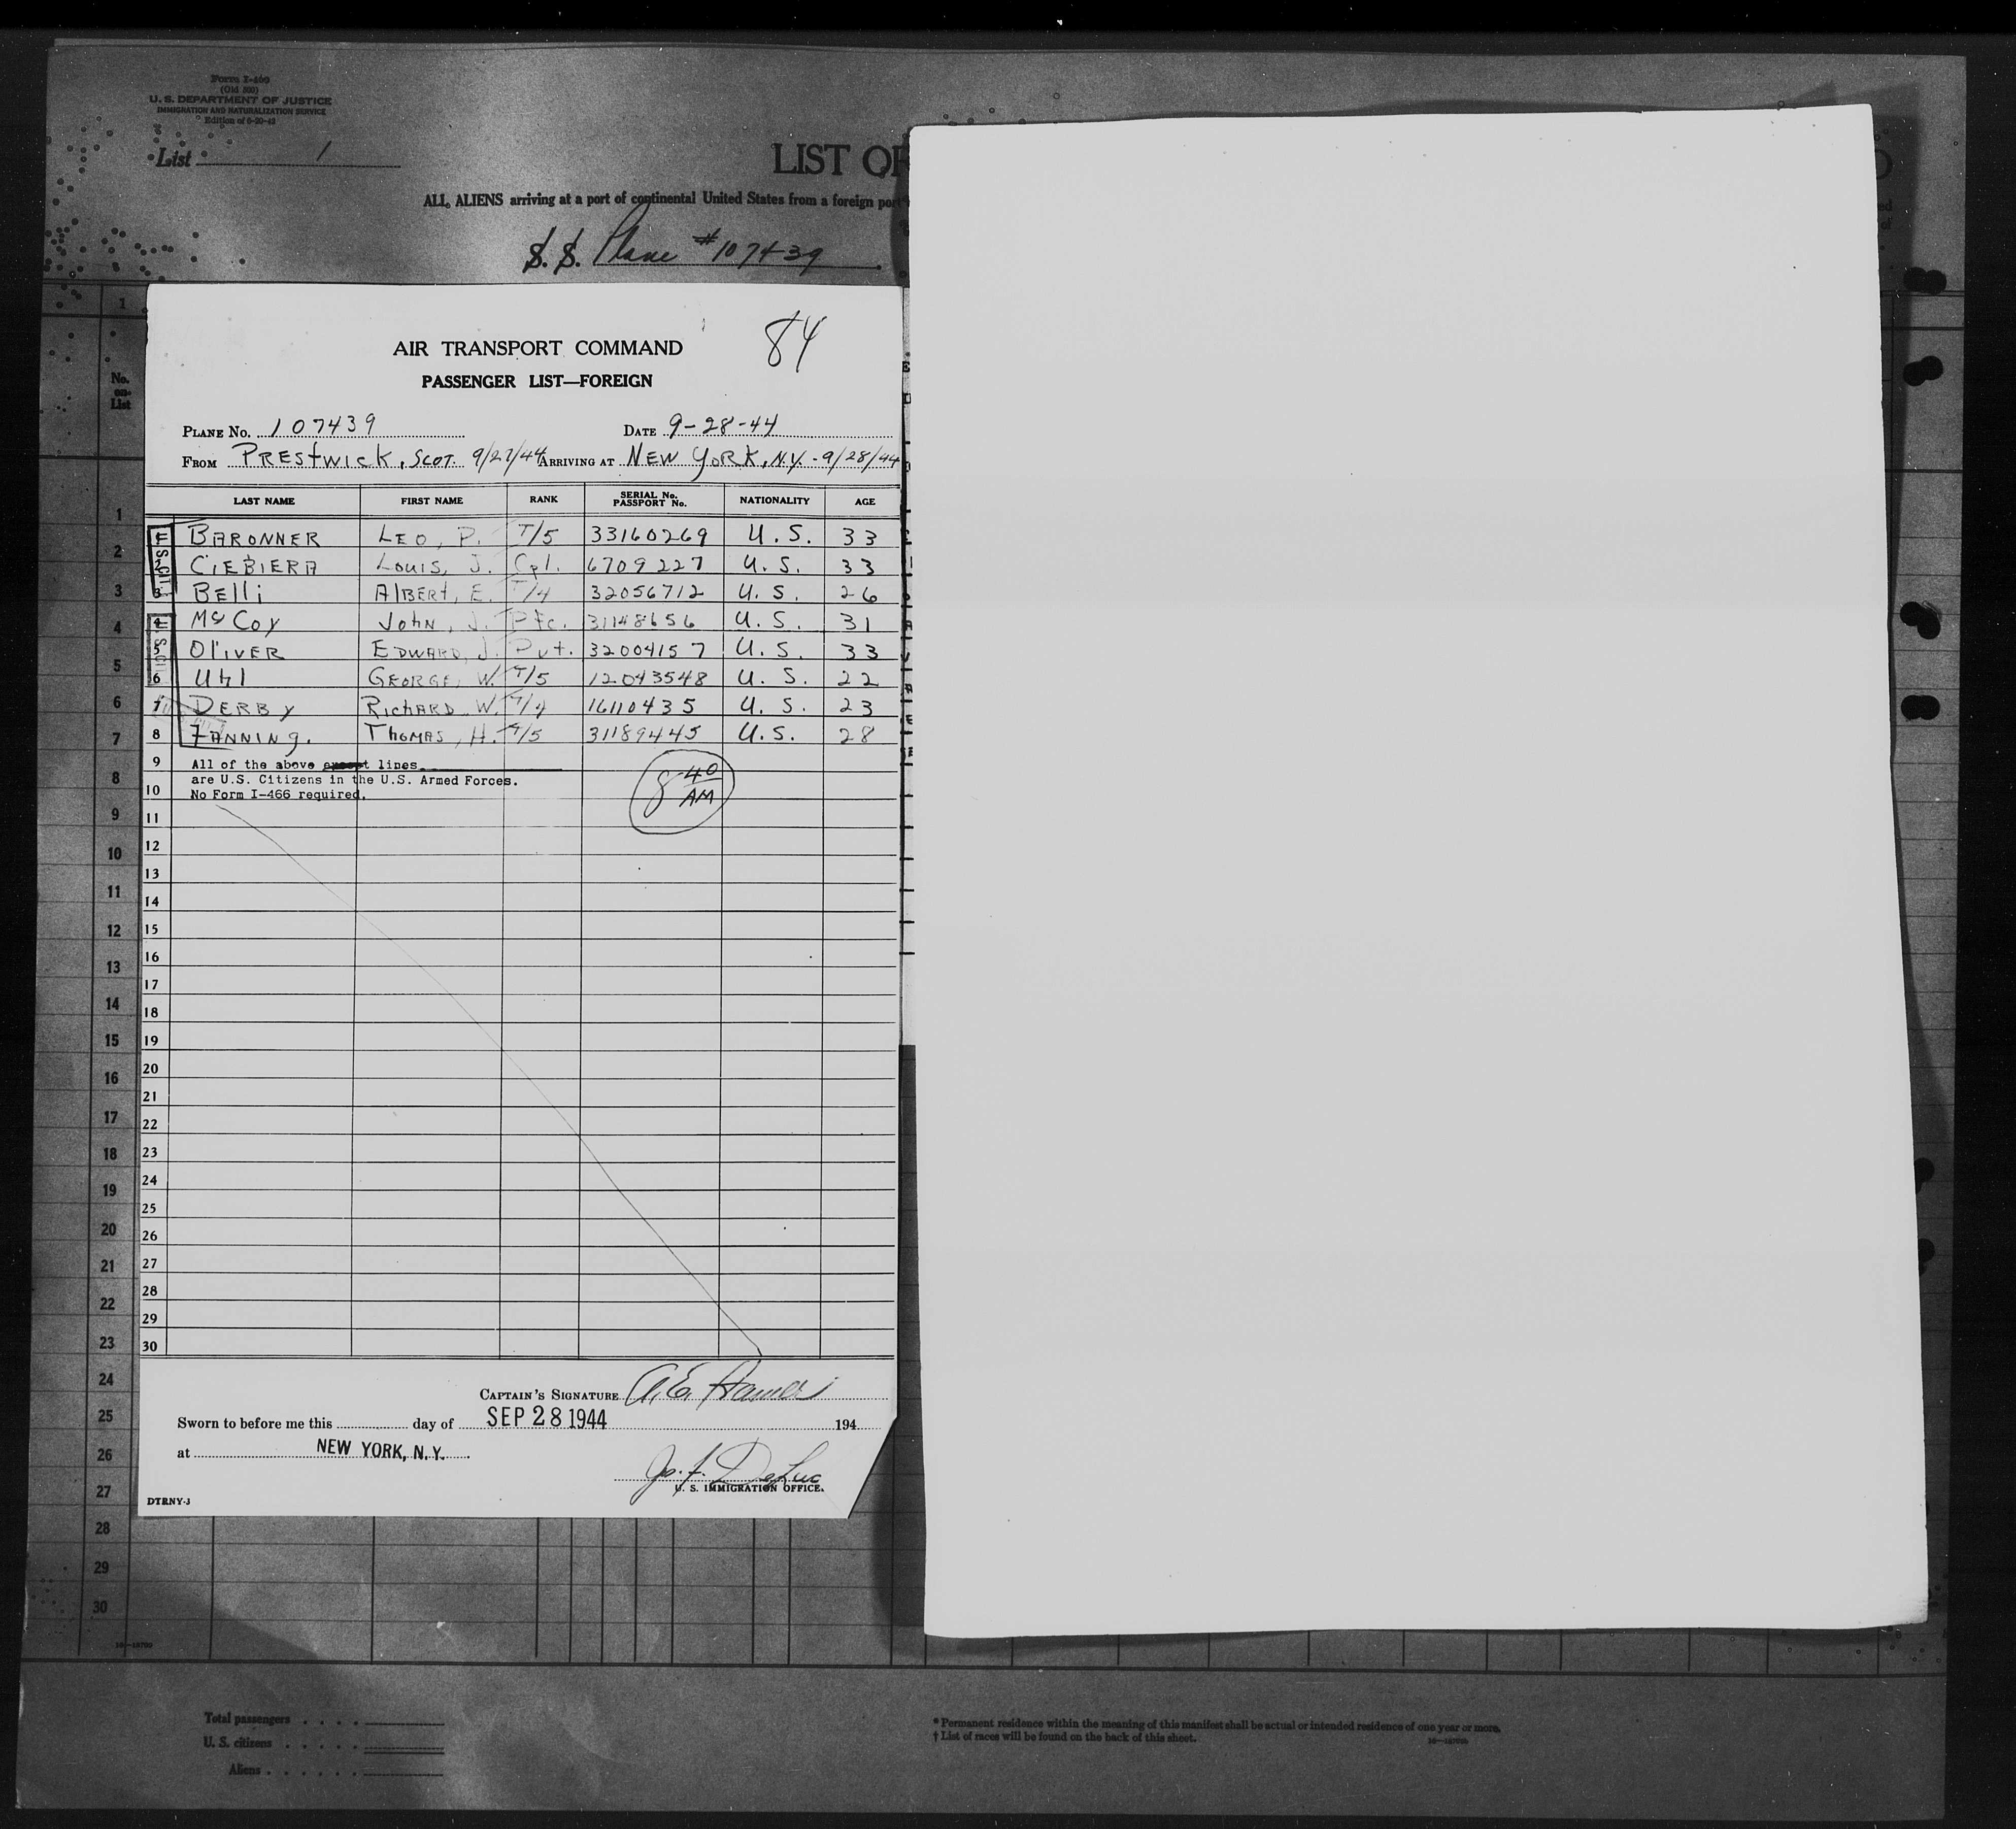 Form I-460
(Old 500)
U. S. DEPARTMENT OF JUSTICE
IMMIGRATION AND NATURALIZATION SERVICE
Edition of 6-20-42
List 1
LIST OF
ALL ALIENS arriving at a port of continental United States from a foreign port
S. S. Plane #107439
AIR TRANSPORT COMMAND
84
PASSENGER LIST—FOREIGN
PLANE NO. 107439 DATE 9-28-44
FROM PRESTWICK, SCOT. 9/27/44 ARRIVING AT NEW YORK, N.Y. - 9/28/44
LAST NAME FIRST NAME RANK SERIAL No. PASSPORT No. NATIONALITY AGE
1 BARONNER LEO, P. T/5 33160269 U. S. 33
2 CIEBIERA LOUIS, J. Cpl. 6709227 U. S. 33
3 BELLI ALBERT, E. T/4 32056712 U. S. 26
4 McCOY JOHN, J. Pfc. 31148656 U. S. 31
5 OLIVER EDWARD, J. Pvt. 32004157 U. S. 33
6 UHL GEORGE, W. T/5 12043548 U. S. 22
7 DERBY RICHARD W. T/4 16110435 U. S. 23
8 FANNING. THOMAS, H. T/5 31189445 U. S. 28
9 All of the above except lines
are U.S. Citizens in the U.S. Armed Forces.
10 No Form I-466 required.
8 40 AM
11
12
13
14
15
16
17
18
19
20
21
22
23
24
25
26
27
28
29
30
CAPTAIN'S SIGNATURE
Sworn to before me this day of SEP 28 1944 194
at NEW YORK, N.Y.
Jo. F. DeLuc
U. S. IMMIGRATION OFFICE.
DTRNY-3
No. on List
1
1
2
3
4
5
6
7
8
9
10
11
12
13
14
15
16
17
18
19
20
21
22
23
24
25
26
27
28
29
30
16—18700
Total passengers
U. S. citizens
Aliens
* Permanent residence within the meaning of this manifest shall be actual or intended residence of one year or more.
† List of races will be found on the back of this sheet.
16—18700